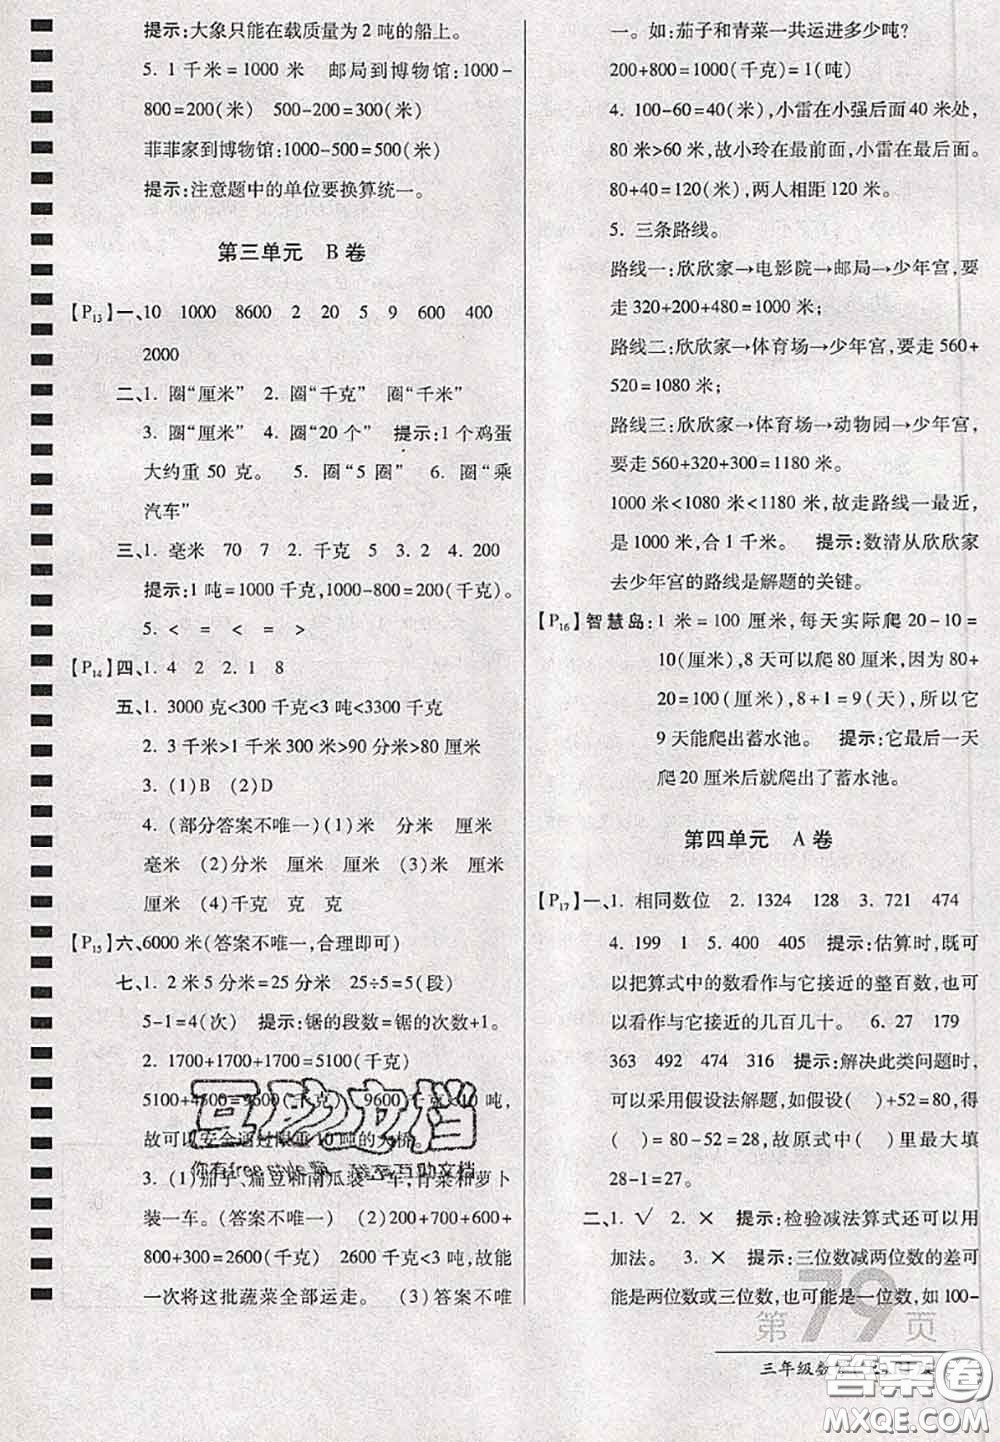 提示:大象只能在载质量为2吨的船上。
5. 1千米=1000米　邮局到博物馆:1000-
800=200(米)　500-200=300(米)
菲菲家到博物馆:1000-500=500(米)
提示:注意题中的单位要换算统一。
第三单元　B卷
【P13】一、10　1000　8600　2　20　5　9　600　400
2000
二、1. 圈“厘米”　2. 圈“千克”　圈“千米”
3. 圈“厘米”　4. 圈“20个”　提示:1个鸡蛋
大约重50克。　5. 圈“5圈”　6. 圈“乘
汽车”
三、1. 毫米　70　7　2. 千克　5　3. 2　4. 200
提示:1吨=1000千克,1000-800=200(千克)。
5. <　=　<　=　>
【P14】四、1. 4　2　2. 1　8
五、1. 3000克<300千克<3吨<3300千克
2. 3千米>1千米300米>90分米>80厘米
3. (1)B　(2)D
4. (部分答案不唯一)(1)米　分米　厘米
毫米　(2)分米　厘米　厘米　(3)米　厘米
厘米　(4)千克　克　克
【P15】六、6000米(答案不唯一,合理即可)
七、1. 2米5分米=25分米　25÷5=5(段)
5-1=4(次)　提示:锯的段数=锯的次数+1。
2. 1700+1700+1700=5100(千克)
5100+4500=9600(千克)　9600千克<10吨,
故可以安全通过限重10吨的大桥。
3. (1)茄子、扁豆和南瓜装一车,青菜和萝卜
装一车。(答案不唯一)　(2)200+700+600+
800+300=2600(千克)　2600千克<3吨,故能
一次将这批蔬菜全部运走。　(3)答案不唯
一。如:茄子和青菜一共运进多少吨?
200+800=1000(千克)=1(吨)
4. 100-60=40(米),小雷在小强后面40米处,
80米>60米,故小玲在最前面,小雷在最后面。
80+40=120(米),两人相距120米。
5. 三条路线。
路线一:欣欣家→电影院→邮局→少年宫,要
走320+200+480=1000米;
路线二:欣欣家→体育场→少年宫,要走560+
520=1080米;
路线三:欣欣家→体育场→动物园→少年宫,
要走560+320+300=1180米。
1000米<1080米<1180米,故走路线一最近,
是1000米,合1千米。　提示:数清从欣欣家
去少年宫的路线是解题的关键。
【P16】智慧岛:1米=100厘米,每天实际爬20-10=
10(厘米),8天可以爬80厘米,因为80+
20=100(厘米),8+1=9(天),所以它
9天能爬出蓄水池。　提示:它最后一天
爬20厘米后就爬出了蓄水池。
第四单元　A卷
【P17】一、1. 相同数位　2. 1324　128　3. 721　474
4. 199　1　5. 400　405　提示:估算时,既可
以把算式中的数看作与它接近的整百数,也可
以看作与它接近的几百几十。　6. 27　179
363　492　474　316　提示:解决此类问题时,
可以采用假设法解题,如假设(　)+52=80,得
(　)=80-52=28,故原式中(　)里最大填
28-1=27。
二、1. √　2. ×　提示:检验减法算式还可以用
加法。　3. ×　提示:三位数减两位数的差可
能是两位数或三位数,也可能是一位数,如100-
第79页
三年级数
互助文档
你有free style吗,我有互助文档
答案圈
MXQE.COM